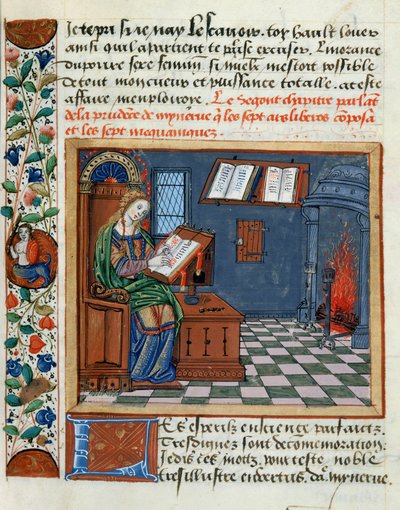 Je te pri si ie nay le scauoir toy hault louer
ainsi quil apartient te plaise excuser Lignorance
du poure sexe feminin si mieulx mestoit possible
de tout mon cueur et puissance totalle a ceste
affaire memploiroye. Le Segont chapitre parlāt
de la prudēce de mynerue q̄ les sept ars liberos cōposa
et les sept mequaniquez
Les esperilz en science parfaictz
Tresdignez sont de comemoration
Je dis ces motz pour ceste noble
tresillustre en vertus da mynerue